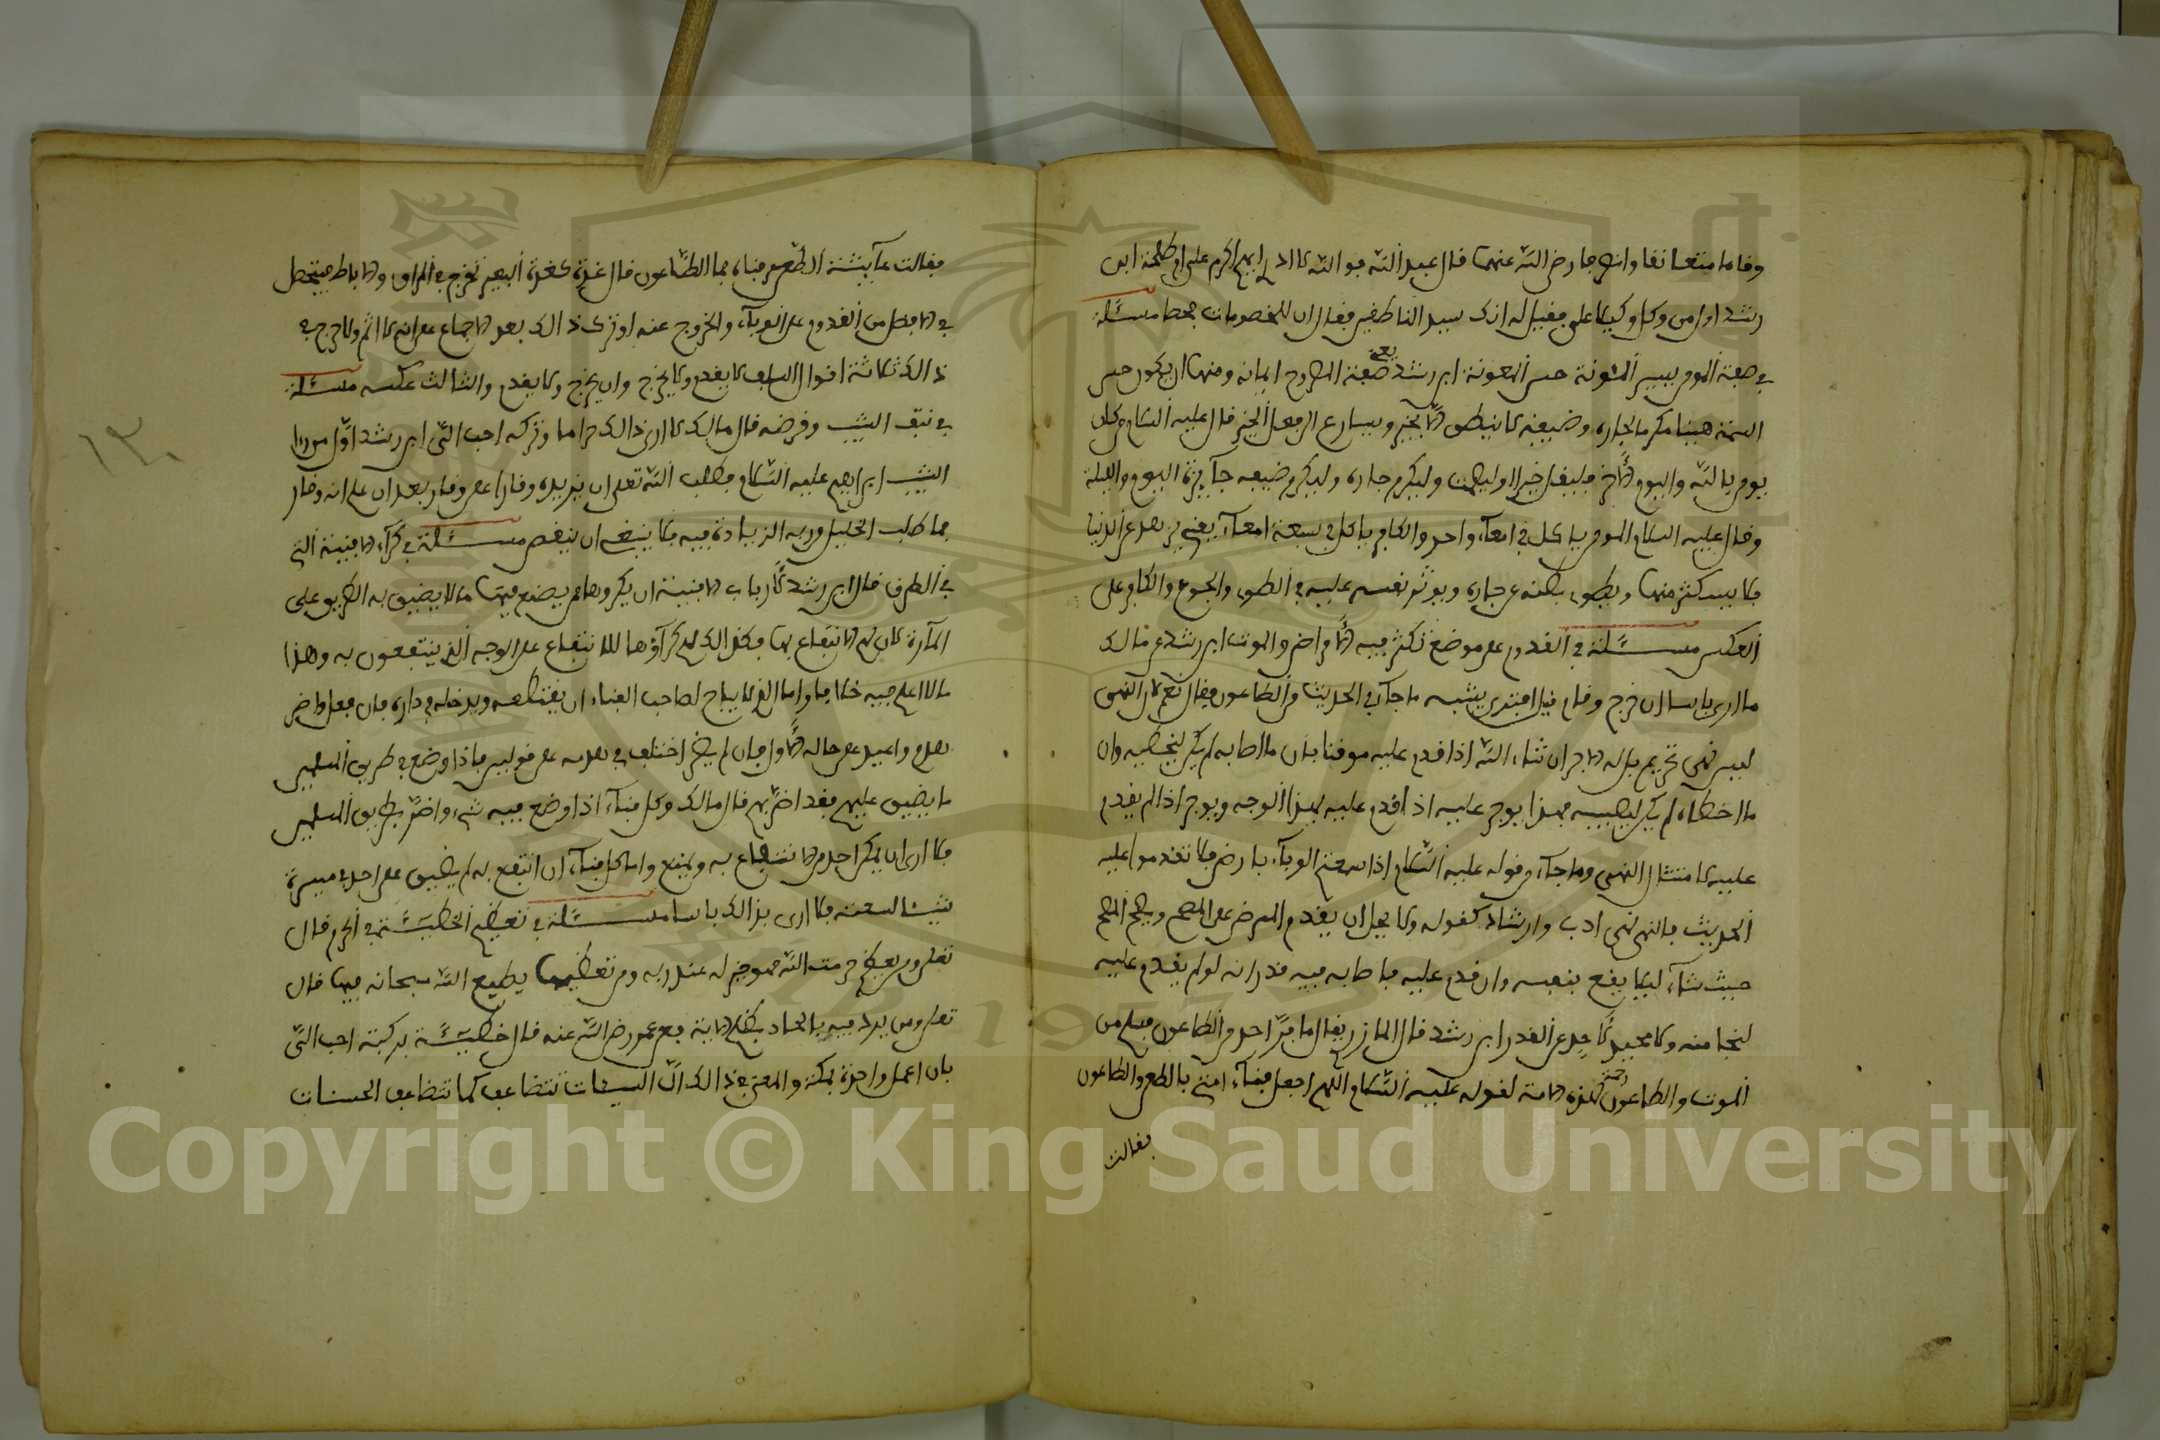 وقاما متعانقا وانصرفا رضي الله عنهما قال عبد الله فوالله ما ادري ايهم اكرم علي او طلحة ابن
رشد اول من وكل وكيلا علي فقيل له انك سيد الناطقين فقال ان للخصومات قحما مسئلة
في صفة المومن يسير المئونة حسن المعونة ابن رشد يعني صفة الممدوح ايمانه ومنها ان يكون حسن
السمت هينا مكرما لجاره وضيفه لا ينطق الا بخير ويسارع الى فعل الخير قال عليه السلام من كان
يومن بالله واليوم الاخر فليقل خيرا او ليصمت وليكرم جاره وليكرم ضيفه جآيزة اليوم والليلة
وقال عليه السلام المومن ياكل في امعآء واحد والكافر ياكل في سبعة امعآء يعني يزهد في الدنيا
فلا يستكثر منها ويطوي بطنه عن جاره ويوثر نفسه عليه في الطوى والجوع والكافر على
العكس مسئلة في القدوم على موضع تكثر فيه الامراض والموت ابن رشد عن مالك
ما ارى باسا ان خرج وقام قيل افترى يشبه ما جآء في الحديث من الطاعون فقال نعم لان النهي
ليس نهي تحريم بل له الاجر ان شاء الله اذا قدم عليه موقنا بان ما اصابه لم يكن ليخطيه وان
ما اخطاه لم يكن ليصيبه فهذا يوجر عليه اذا قدم عليه بهذا الوجه ويوجر اذا لم يقدم
عليه لامتثال النهي وما جآء من قوله عليه السلام اذا سمعتم الوبآء بارض فلا تقدموا عليه
الحديث فالنهي نهي ادب وارشاد كقوله ولا يحل ان يقدم الممرض على المصح ويحل المصح
حيث شآء ليلا يقع بنفسه وان قدم عليه فاصابه فيه قدر انه لو لم يقدم عليه
لنجا منه ولا محيد لاحد عن القدر ابن رشد قال المازري يقال ما فر احد من الطاعون فسلم من
الموت والطاعون رحمة لهذه الامة لقوله عليه السلام اللهم اجعل فنآء امتي بالطعن والطاعون
فقالت
فقالت عآيشة الطعن عرفناه فما الطاعون قال غدة كغدة البعير تخرج في المراق والاباط فيتحصل
في الافضل من القدوم على الوبآء والخروج عنه او ترك ذالك بعد الاجماع على انه لا اثم ولا حرج في
ذالك ثلاثة اقوال السلف لا يقدم ولا يخرج وان يخرج ولا يقدم والثالث عكسه مسئلة
في نتف الشيب وقرضه قال مالك لا ارى ذالك حراما وتركه احب الي ابن رشد اول من راى
الشيب ابراهيم عليه السلام فطلب الله تعلى ان يزيده وقارا على وقار بعد ان علم انه وقار
فما طلب الخليل من ربه الزيادة فيه فلا ينبغي ان ينقص مسئلة في كرآء الافنية التي
في الطرق قال ابن رشد لارباب الافنية ان يكروها ممن يضع فيها ما لا يضيق به الطريق على
المآرة لان لهم الانتفاع بها وكذالك لهم كرآؤها للانتفاع على الوجه الذي ينتفعون به وهذا
ما لا اعلم فيه خلافا واما الذي لا يباح لصاحب الفناء ان يقتطعه ويدخله في داره فان فعل واضر
هدم واعيد على حاله الاول فان لم يضر اختلف في هدمه على قولين فاذا وضع في طريق المسلمين
ما يضيق عليهم فقد اضر بهم قال مالك وكل فنآء اذا وضع فيه شيء واضر بطريق المسلمين
فلا ارى ان يمكن احد من الانتفاع به ويمنع واما كل فنآء ان انتفع به لم يضيق على احد في مسيره
شيئا لسعته فلا ارى بذالك باسا مسئلة في تعظيم الخطيئة في الحرم قال
تعلى ومن يعظم حرمت الله فهو خير له عند ربه ومن تعظيمها يطيع الله سبحانه فيها قال
تعلى ومن يرد فيه بالحاد بظلم الاية فعن عمر رضي الله عنه قال خطيئة بركبة احب الي
بان اعمل واحدة بمكة والمعنى في ذالك ان السيئات تتضاعف كما تتضاعف الحسنات
١٣
Copyright © King Saud University
1957